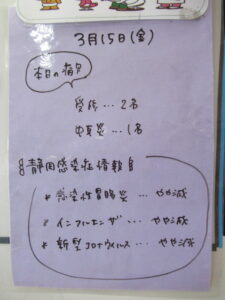 3月15日(金)
本日の病欠
発熱…2名
中耳炎…1名
静岡感染症情報
* 感染性胃腸炎 … やや減
* インフルエンザ … やや減
* 新型コロナウィルス … やや減